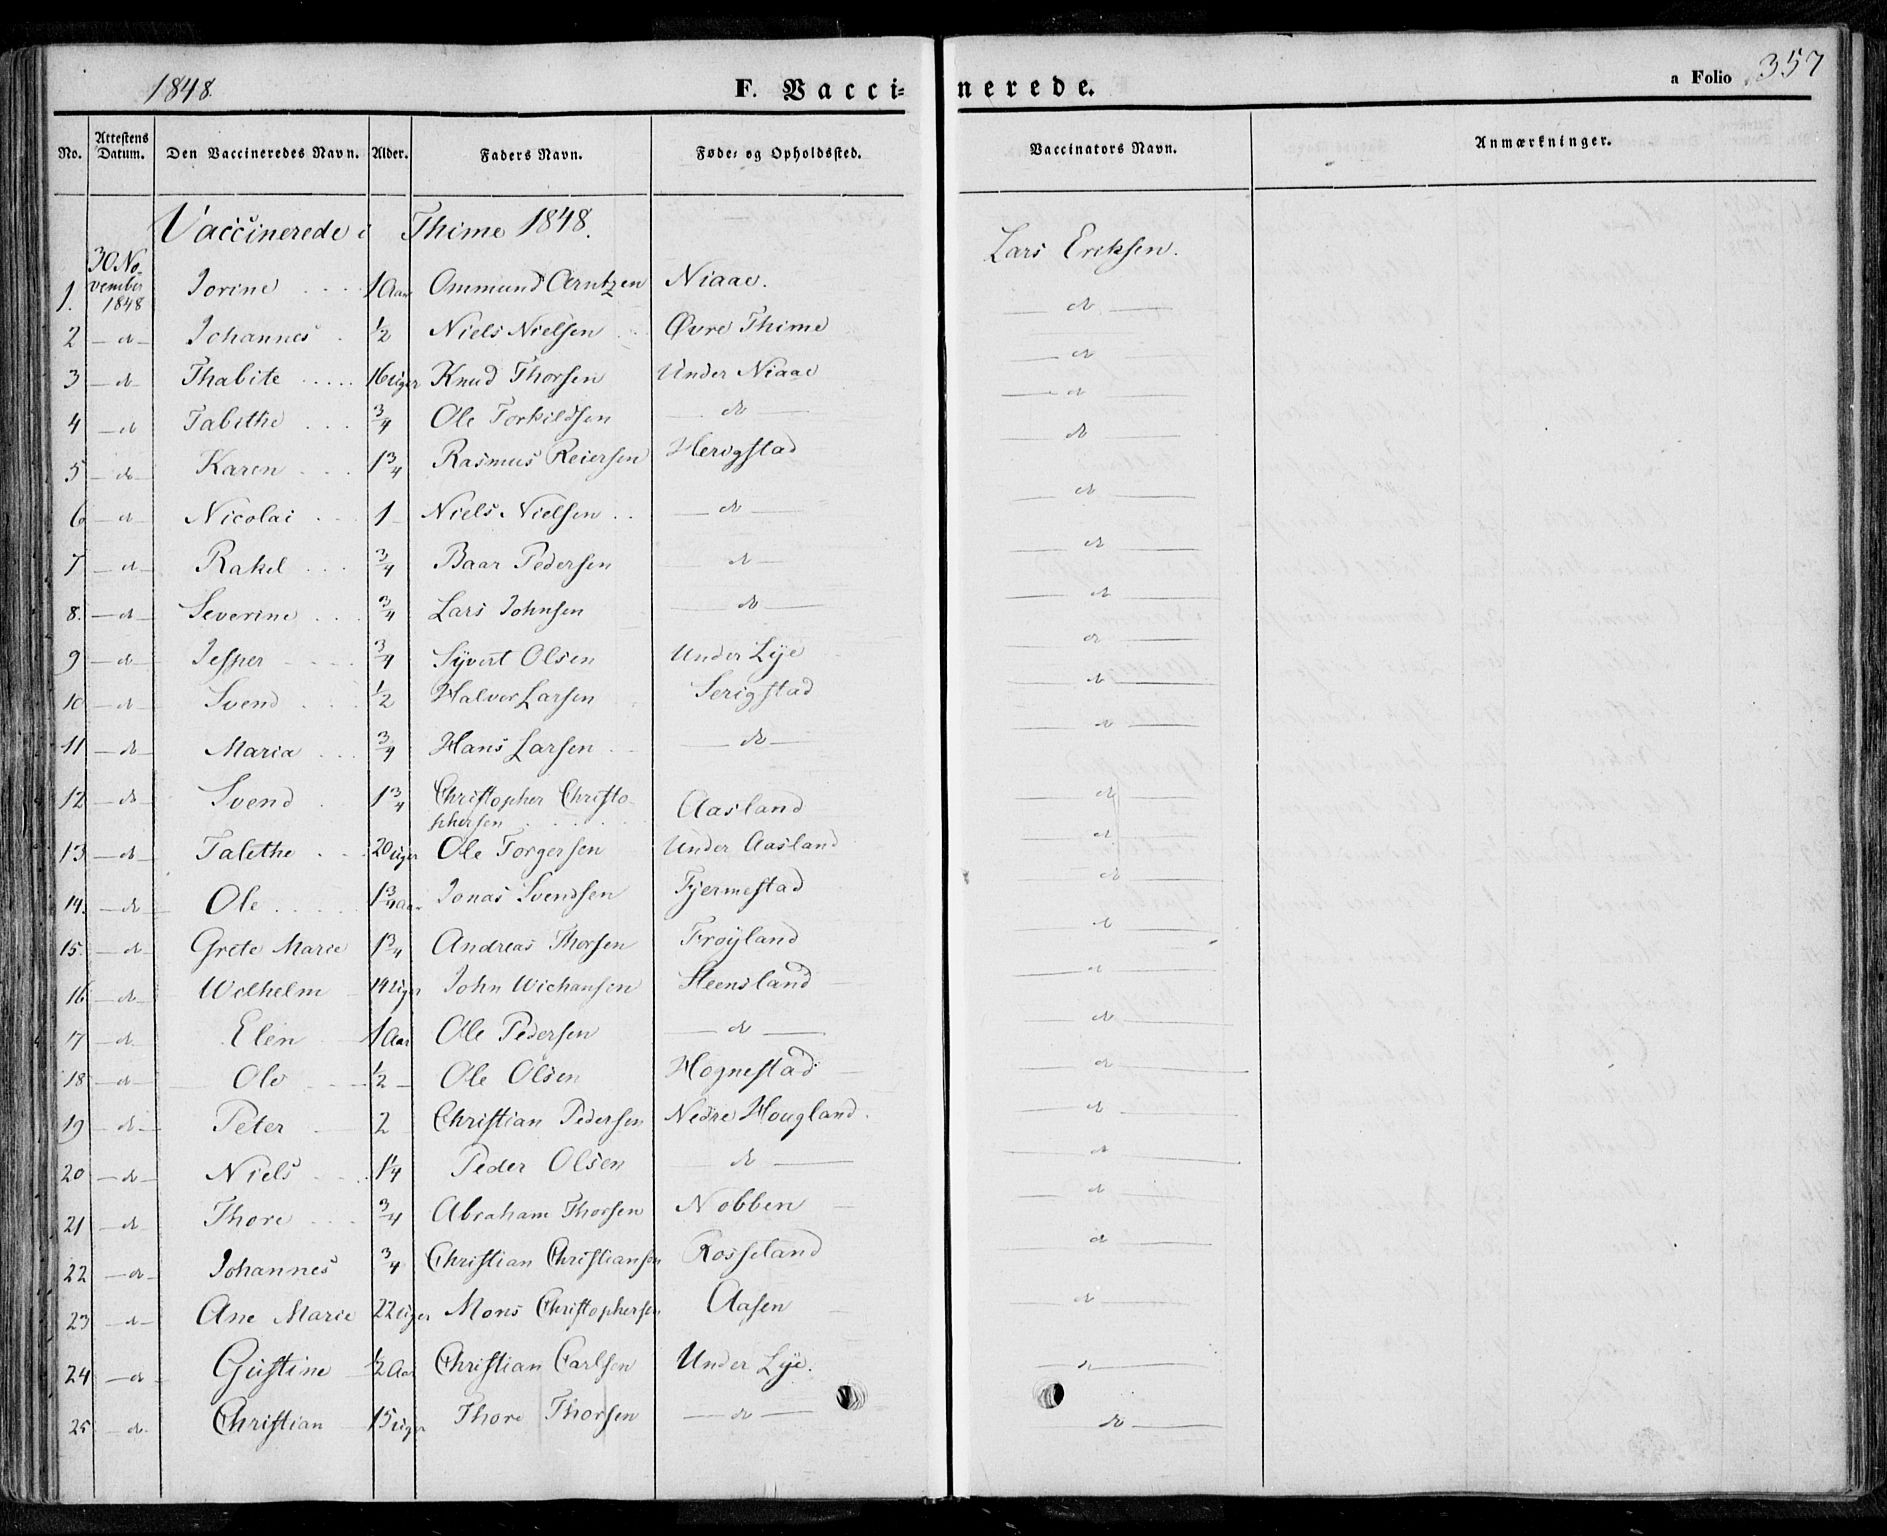 1848. F. Vacci- nerede. a Folio 357
No. Attestens Datum. Den Vaccineredes Navn. Alder. Faders Navn. Føde- og Opholdssted. Vaccinators Navn. Anmærkninger.
Vaccinerede i Thime 1848.
Lars Eriksen.
1. 30 November 1848 Jorine 1 Aar Ommund Arntzen Niaae. do
2 do Johannes ½ Niels Nielsen Øvre Thime do
3 do Thabite 16 Uger Knud Thorsen Under Niaae do
4 do Tabithe ¾ Ole Torkildsen do do
5 do Karen 1¾ Rasmus Reiersen Herigstad do
6 do Nicolai 1 Niels Nielsen do do
7 do Rakel ¾ Baar Pedersen do do
8. do Severine ¾ Lars Johnsen do do
9 do Jesper ¾ Syvert Olsen Under Lye do
10 do Svend ½ Halvor Larsen Serigstad do
11 do Maria ¾ Hans Larsen do do
12 do Svend 1¾ Christopher Christophersen Aasland do
13 do Talethe 20 Uger Ole Torgersen Under Aasland do
14. do Ole 1¾ Aar Jonas Svendsen Tjermestad do
15. do Grete Marie 1¾ Andreas Thorsen Frøyland do
16 do Wilhelm 14 Uger John Wichansen Steensland do
17 do Elen 1 Aar Ole Pedersen do do
18 do Ole ½ Ole Olsen Hognestad do
19 do Peter 2 Christian Pedersen Nedre Hougland. do
20 do Niels 1¼ Peder Olsen do do
21 do Thore ¾ Abraham Thorsen Nobben do
22 do Johannes ¾ Christian Christiansen Rosseland do
23 do Ane Marie 22 Uger Mons Christophersen Aasen do
24 do Gustine ½ Aar Christian Carlsen Under Lye. do
25 do Christian 15 Uger Thore Thorsen do do